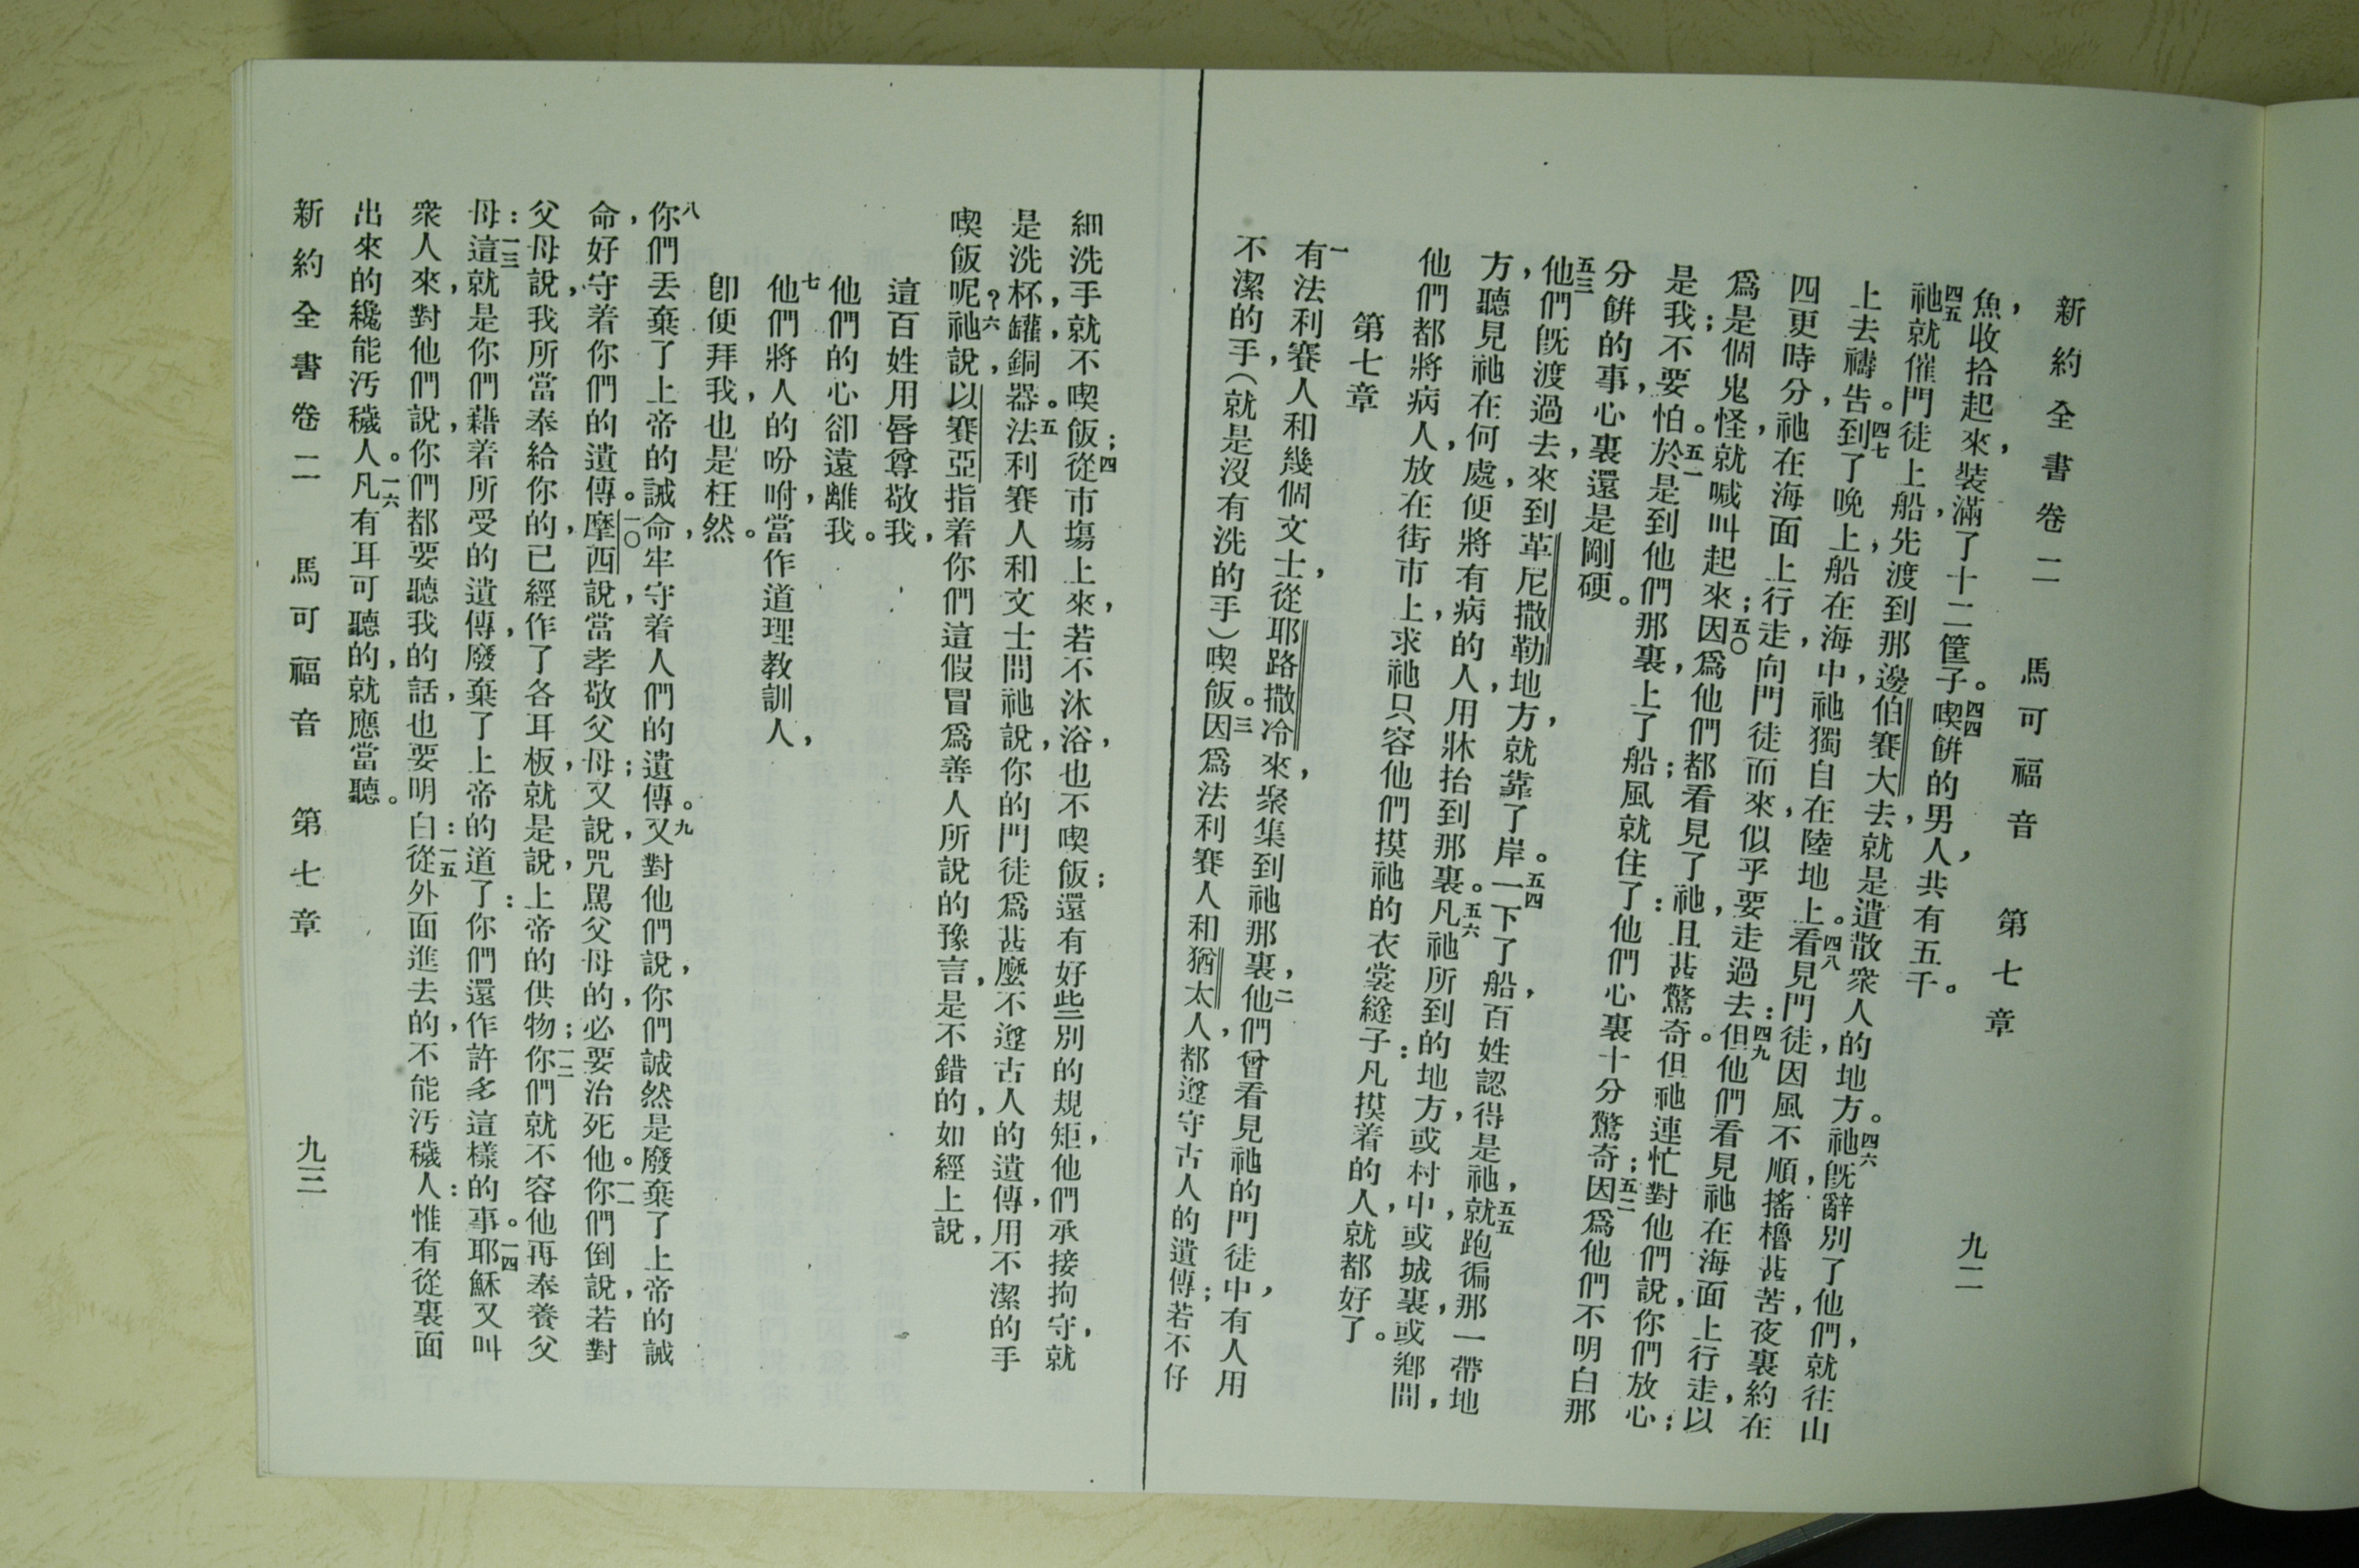 新約全書卷二　馬可福音　第七章　九二
魚，收拾起來，裝滿了十二筐子。四四喫餅的男人，共有五千。
四五祂就催門徒上船，先渡到那邊伯賽大去，就是遣散衆人的地方。四六祂旣辭別了他們，就往山
上去禱告。四七到了晚上，船在海中，祂獨自在陸地上。四八看見門徒，因風不順，搖櫓甚苦，夜裏約在
四更時分，祂在海面上行走，向門徒而來，似乎要走過去：四九但他們看見祂在海面上行走，以
爲是個鬼怪，就喊叫起來；五〇因爲他們都看見了祂，且甚驚奇。但祂連忙對他們說，你們放心；
是我；不要怕。五一於是到他們那裏，上了船；風就住了：他們心裏十分驚奇；五二因爲他們不明白那
分餅的事，心裏還是剛硬。
五三他們旣渡過去，來到革尼撒勒地方，就靠了岸。五四一下了船，百姓認得是祂，五五就跑徧那一帶地
方，聽見祂在何處，便將有病的人，用牀抬到那裏。五六凡祂所到的地方，或村中，或城裏，或鄉間，
他們都將病人，放在街市上，求祂只容他們摸祂的衣裳繸子：凡摸着的人，就都好了。
第七章
一有法利賽人和幾個文士，從耶路撒冷來，聚集到祂那裏，二他們曾看見祂的門徒中，有人用
不潔的手，（就是沒有洗的手）喫飯。三因爲法利賽人和猶太人，都遵守古人的遺傳；若不仔
細洗手就不喫飯；四從市塲上來，若不沐浴，也不喫飯；還有好些別的規矩，他們承接拘守，就
是洗杯，罐，銅器。五法利賽人和文士問祂說，你的門徒爲甚麼不遵古人的遺傳，用不潔的手
喫飯呢？六祂說，以賽亞指着你們這假冒爲善人所說的豫言，是不錯的，如經上說，
這百姓用唇尊敬我，
他們的心卻遠離我。
七他們將人的吩咐，當作道理教訓人，
卽便拜我，也是枉然。
八你們丟棄了上帝的誡命，牢守着人們的遺傳。九又對他們說，你們誠然是廢棄了上帝的誡
命，好守着你們的遺傳。一〇摩西說，當孝敬父母；又說，咒罵父母的，必要治死他。一一你們倒說，若對
父母說，我所當奉給你的，已經作了各耳板，就是說，上帝的供物；一二你們就不容他再奉養父
母：一三這就是你們，藉着所受的遺傳，廢棄了上帝的道了：你們還作許多這樣的事。一四耶穌又叫
衆人來，對他們說，你們都要聽我的話，也要明白：一五從外面進去的，不能汚穢人：惟有從裏面
出來的纔能汚穢人。一六凡有耳可聽的，就應當聽。
新約全書卷二　馬可福音　第七章　九三